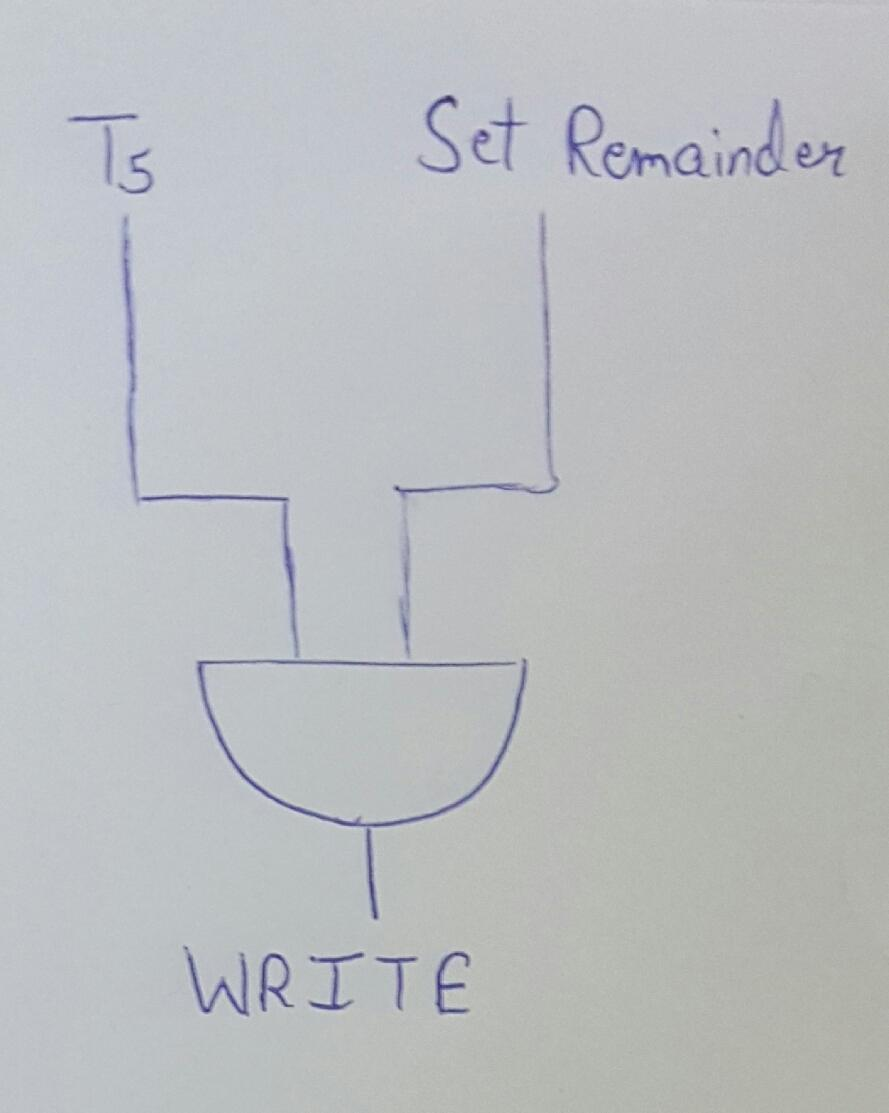 T5 Set Remainder
WRITE